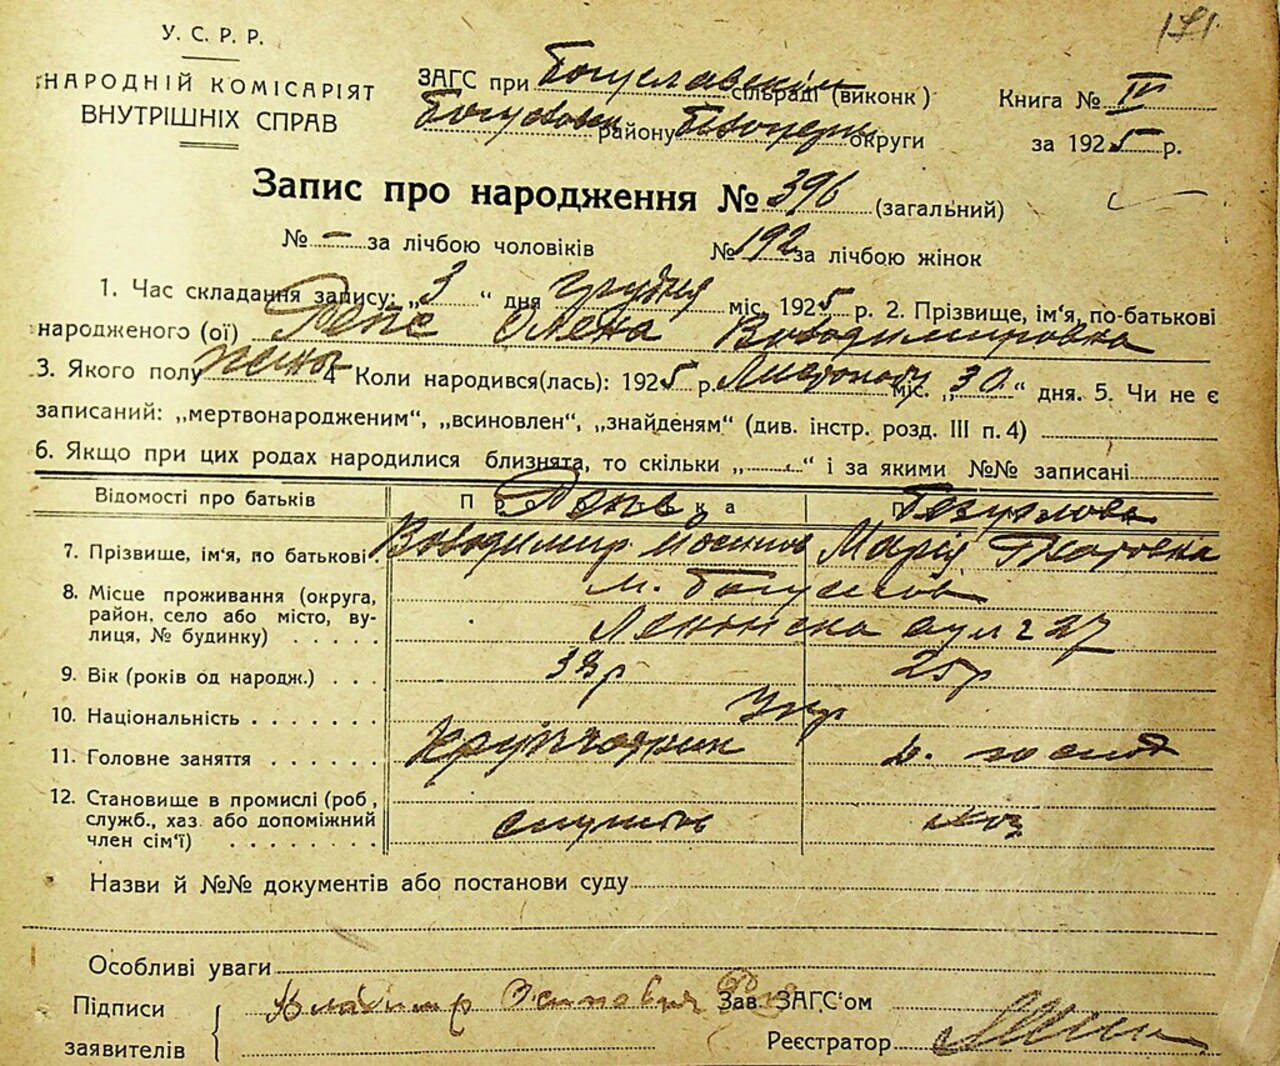 171.
У. С. Р. Р.
НАРОДНІЙ КОМІСАРІЯТ
ВНУТРІШНІХ СПРАВ
ЗАГС при Богуславскім сільраді (виконк)
району округи
Книга № IV
за 1925 р.
Запис про народження № 396 (загальний)
№ – за лічбою чоловіків № 192 за лічбою жінок
1. Час складання запису: „3“ дня грудня міс. 1925 р. 2. Прізвище, ім'я, по-батькові
народженого (ої) Репе Олена Володимировна
3. Якого полу жіно 4 Коли народився(лась): 1925 р. Листопаду міс. „30“ дня. 5. Чи не є
записаний: „мертвонародженим“, „всиновлен“, „знайденям“ (див. інстр. розд. III п. 4)
6. Якщо при цих родах народилися близнята, то скільки „ “ і за якими №№ записані
Відомості про батьків
7. Прізвище, ім'я, по батькові Володимир Марія
8. Місце проживання (округа, район, село або місто, вулиця, № будинку) м. Богуслав
Ленінска вул 27
9. Вік (років од народж.) 33р 25р
10. Національність Укр
11. Головне заняття
12. Становище в промислі (роб, служб., хаз або допоміжний член сім'ї) служить хоз
Назви й №№ документів або постанови суду
Особливі уваги
Підписи заявителів Владимир Зав. ЗАГС'ом
Реєстратор